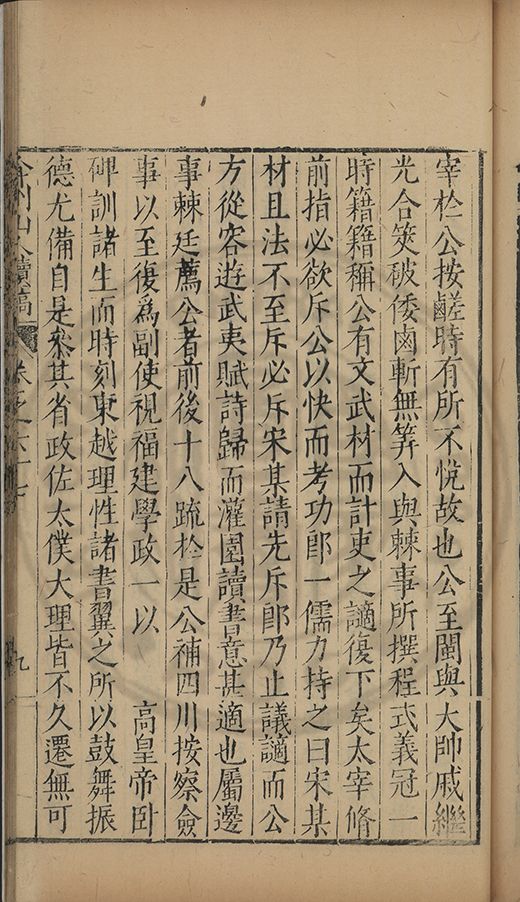 宰於公按鹺時有所不悅故也公至閩與大帥戚繼
光合筴破倭鹵斬無筭入與棘事所撰程式義冠一
時籍籍稱公有文武材而計吏之謫復下矣太宰脩
前指必欲斥公以快而考功郎一儒力持之曰宋某
材且法不至斥必斥宋某請先斥郎乃止議謫而公
方從容遊武夷賦詩歸而灌園讀書意甚適也屬邊
事棘廷薦公者前後十八疏於是公補四川按察僉
事以至復爲副使視福建學政一以　　高皇帝臥
碑訓諸生而時刻東越理性諸書翼之所以鼓舞振
德尤備自是叅其省政佐太僕大理皆不久遷無可
弇州山人續稿　卷之六十七　九